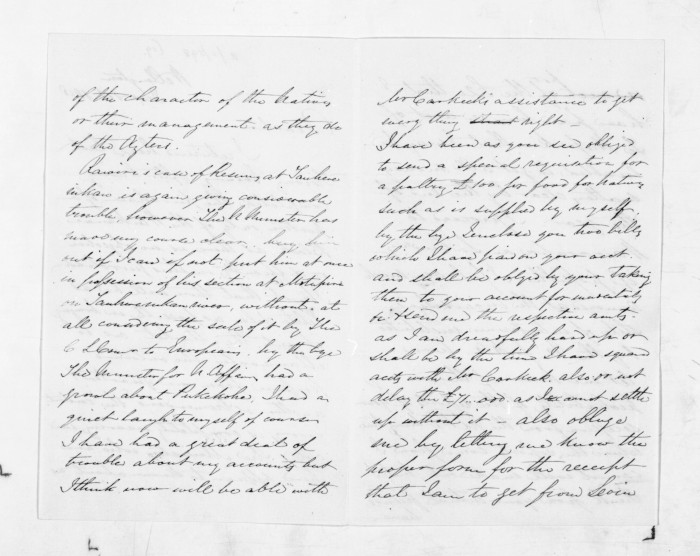 of the character of the Natives
or their management. as they do
of the Aztecs.
Rawiri's case of Reserve at Tauhere
is again giving considerable
trouble, however The N Minister has
made my course clear, buy him
out if I can if not put him at once
in possession of his section at
on river, without at
all considering the sale of it by The
C L Comr to Europeans. by the bye
The Minister for N Affairs had a
growl about Pukekohe. I had a
quiet laugh to myself of course
I have had a great deal of
trouble about my accounts but
I think now will be able with
Mr Carkeek's assistance to get
every thing right —
I have been as you see obliged
to send a special requisition for
a paltry £100. for food for Natives
such as is supplied by myself.
by the bye I enclose you two bills
which I have paid on your acct.
and shall be obliged by your taking
them to your account for
& send me the respective amts.
as I am dreadfully hard up or
shall be by the time I have squared
accts with Mr Carkeek. also do not
delay the as I cannot settle
up without it — also oblige
me by letting me know the
proper form for the receipt
that I am to get from Levin